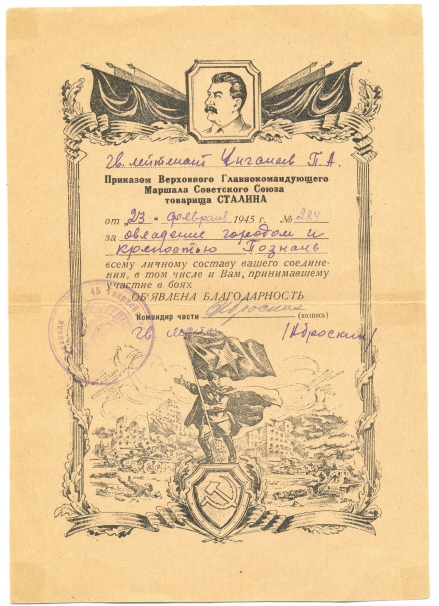 гв. лейтенант Циганов П. А.
Приказом Верховного Главнокомандующего
Маршала Советского Союза
товарища СТАЛИНА
от „23“ февраля 1945 г. № 284
за овладение городом и
крепостью Познань
всему личному составу вашего соедине-
ния, в том числе и Вам, принимавшему
участие в боях
ОБ'ЯВЛЕНА БЛАГОДАРНОСТЬ
Командир части (подпись)
гв. /Аброскин/
45